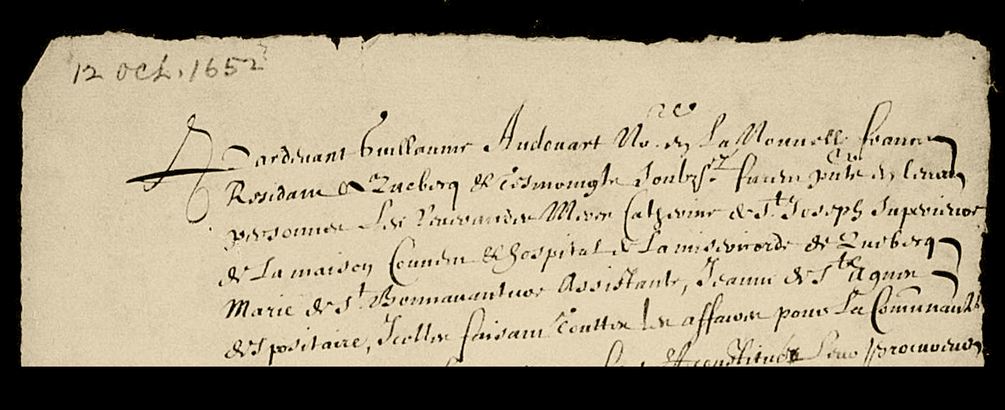 12 Oct. 1652
Pardevant Guillaume Audouart No.re en La Nouvelle france
Residant a Quebecq & tesmoingts soubz.nez furent pnts en leurs
personnes Les Reverandes Meres Catherine de St Joseph Superieure
de La maison Couvent & hospital de La misericorde de Quebecq
Marie de St Bonnavanture Assistante, Jeanne de Ste Agnes
depositaire, Icelles faisant touttes les affaires pour La Communauté
constitué Leur procureur